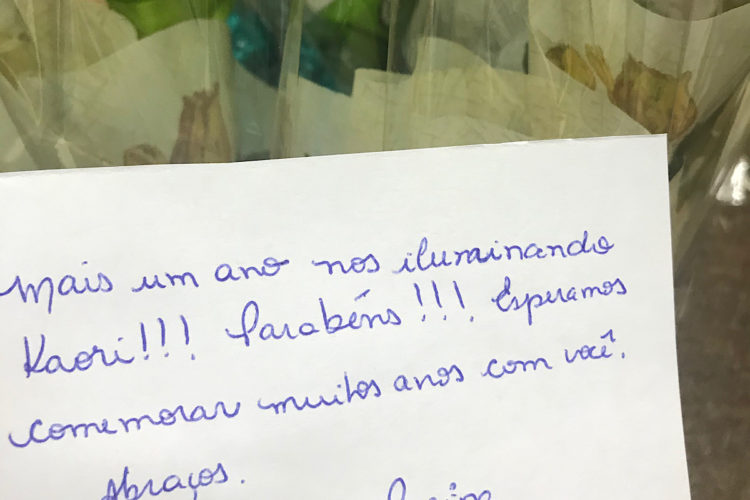 Mais um ano nos iluminando
Kaori!!! Parabéns!!! Esperamos
comemorar muitos anos com você.
Abraços.